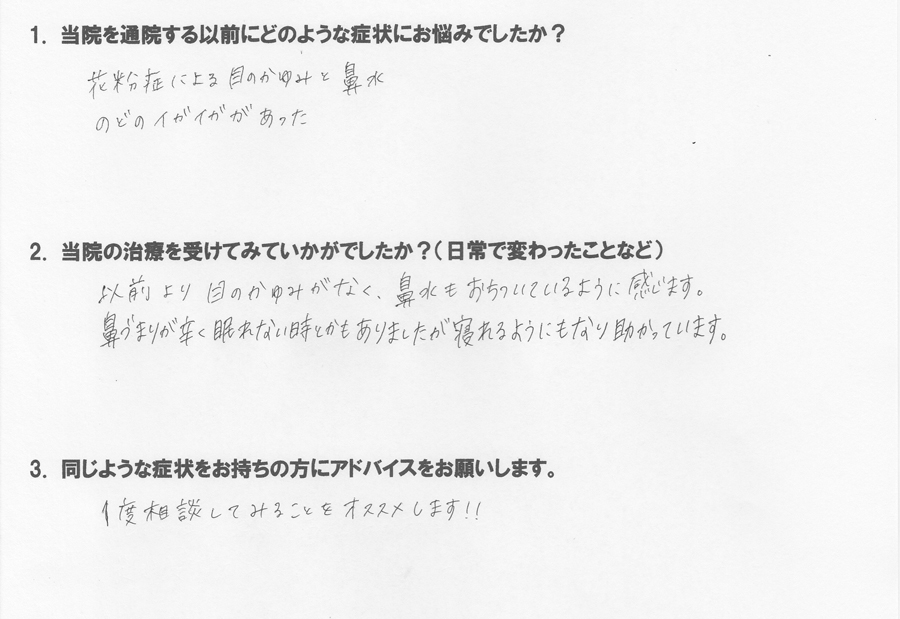 1. 当院を通院する以前にどのような症状にお悩みでしたか？
花粉症による目のかゆみと鼻水
のどのイガイガがあった
2. 当院の治療を受けてみていかがでしたか？（日常で変わったことなど）
以前より目のかゆみがなく、鼻水もおちついているように感じます。
鼻づまりが辛く眠れない時とかもありましたが寝れるようにもなり助かっています。
3. 同じような症状をお持ちの方にアドバイスをお願いします。
1度相談してみることをオススメします!!